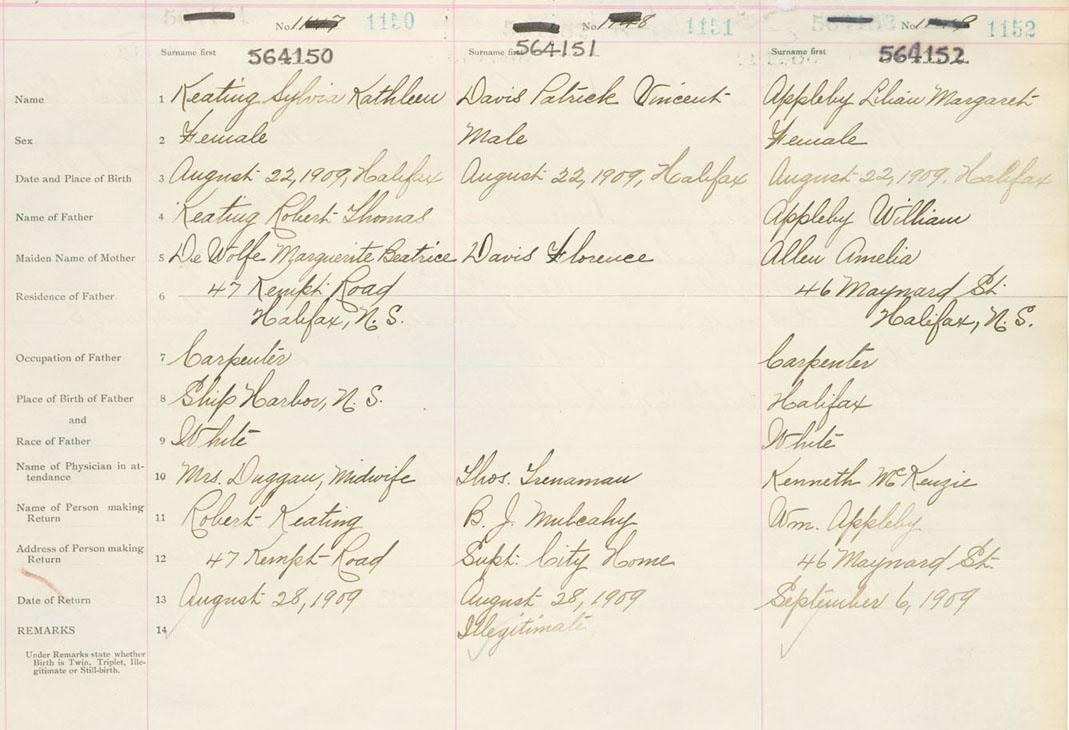 No. 1150 No. 1151 No. 1152
Surname first 564150 Surname first 564151 Surname first 564152
Name 1 Keating Sylvia Kathleen Davis Patrick Vincent Appleby Lilian Margaret
Sex 2 Female Male Female
Date and Place of Birth 3 August 22, 1909, Halifax August 22, 1909, Halifax August 22, 1909, Halifax
Name of Father 4 Keating Robert Thomas Appleby William
Maiden Name of Mother 5 De Wolfe Marguerite Beatrice Davis Florence Allen Amelia
Residence of Father 6 47 Kempt Road 46 Maynard St.
Halifax, N.S. Halifax, N.S.
Occupation of Father 7 Carpenter Carpenter
Place of Birth of Father 8 Ship Harbor, N.S. Halifax
and
Race of Father 9 White White
Name of Physician in at-
tendance 10 Mrs. Duggan, Midwife Thos. Trenaman Kenneth McKenzie
Name of Person making
Return 11 Robert Keating B. J. Mulcahy Wm. Appleby
Address of Person making
Return 12 47 Kempt Road Supt. City Home 46 Maynard St.
Date of Return 13 August 28, 1909 August 28, 1909 September 6, 1909
REMARKS 14 Illegitimate
Under Remarks state whether
Birth is Twin, Triplet, Ille-
gitimate or Still-birth.